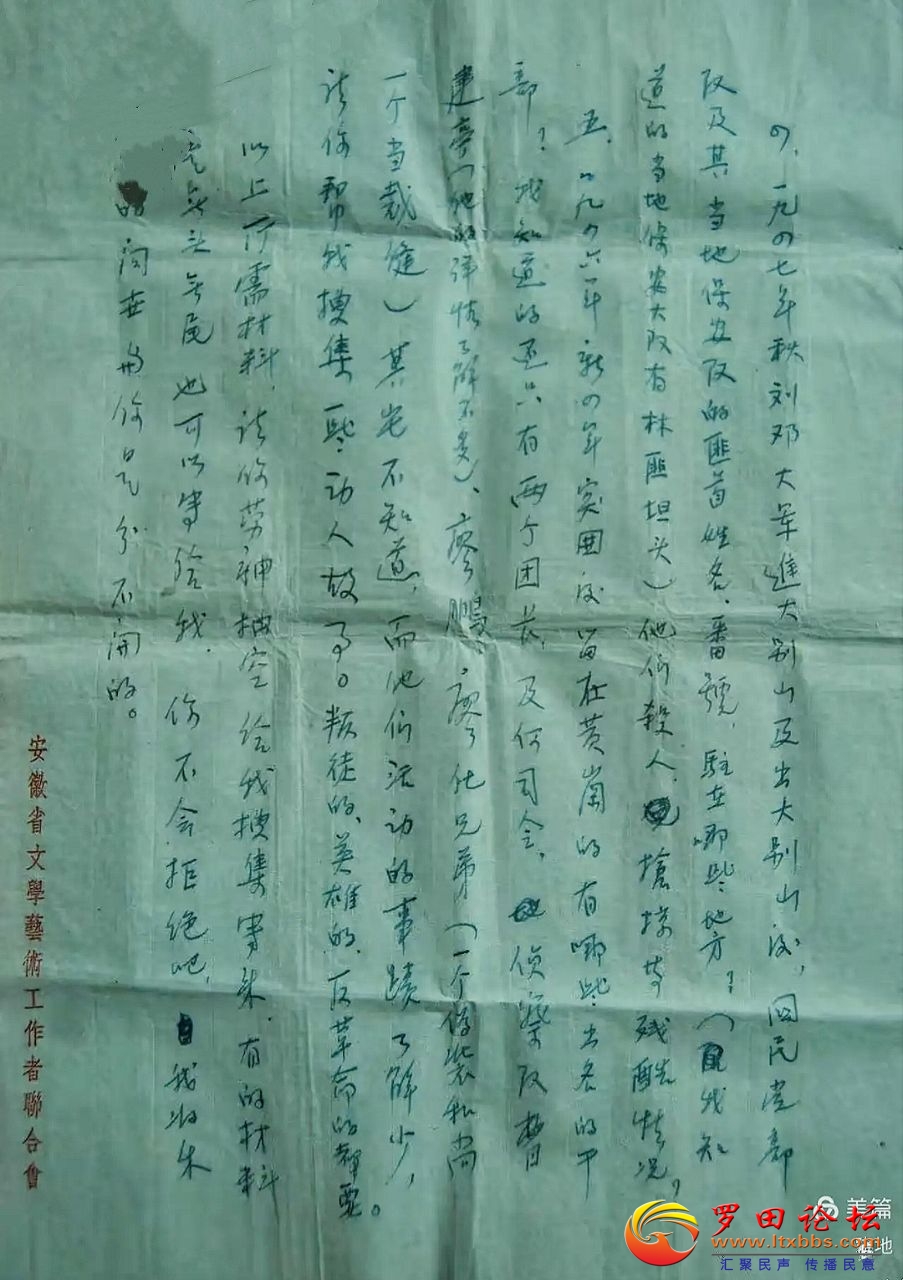 四、一九四七年秋刘邓大军进大别山及出大别山后，国民党部
队及其当地保安队的匪首姓名、番號，駐在哪些地方？（我知
道的当地保安大队有林匪坦头）他们殺人、搶掠等残酷情况，
五、一九四六年新四军突围后留在黄岗的有哪些出名的干
部？我知道的还只有两个团长，及何司令，侦察队曹
建亭（他的详情了解不多）、廖鵬、廖化兄弟（一个僞装和尚
一个当裁缝）其它不知道，而他们活动的事蹟了解少，
请你帮我搜集一些动人故事。叛徒的、英雄的、反革命的都要。
以上所需材料，请你劳神抽空给我搜集寄来，有的材料
无头无尾也可以寄给我，你不会拒绝吧，我将来
的 与你是分不开的。
安徽省文學藝術工作者聯合會
美篇
罗田论坛
www.ltxbbs.com
汇聚民声 传播民意